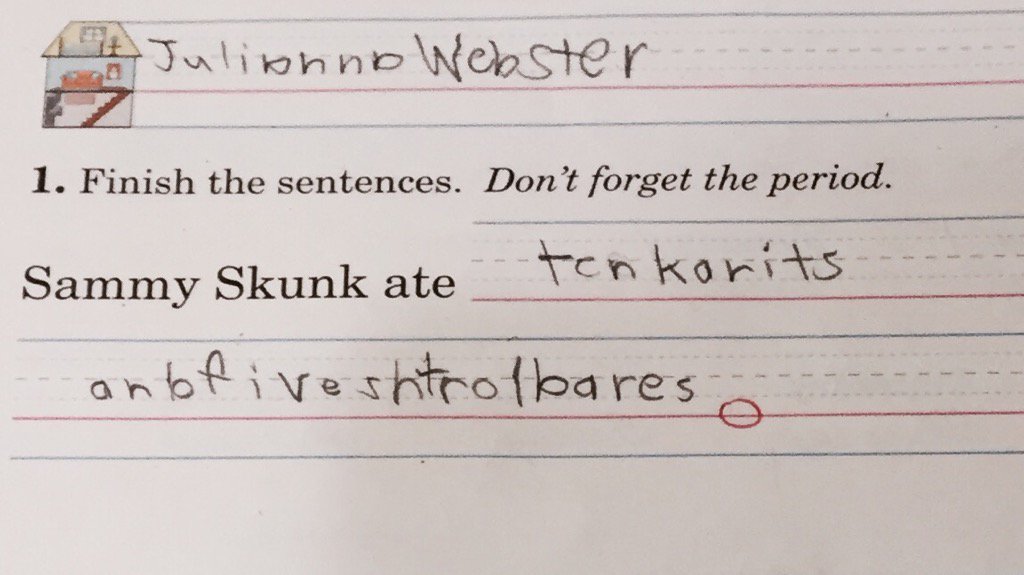 Julianna Webster
1. Finish the sentences. Don't forget the period.
Sammy Skunk ate ten karits
anb five shtrolbares